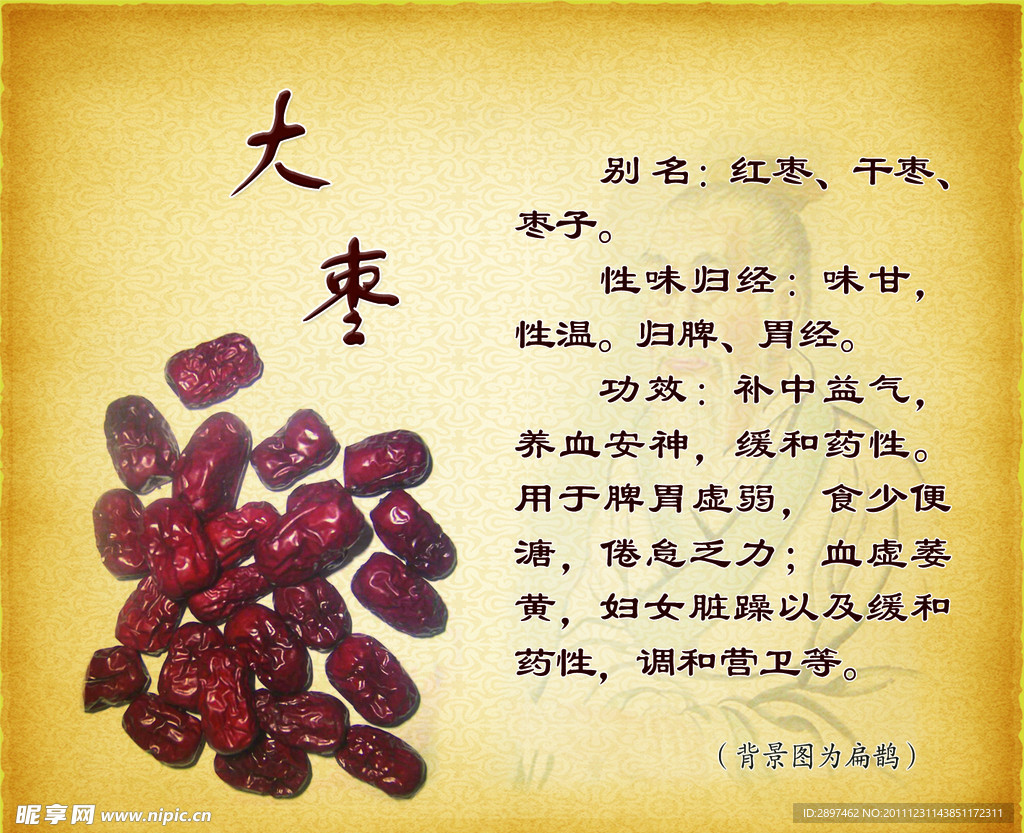 大
枣
别名：红枣、干枣、
枣子。
性味归经：味甘，
性温。归脾、胃经。
功效：补中益气，
养血安神，缓和药性。
用于脾胃虚弱，食少便
溏，倦怠乏力；血虚萎
黄，妇女脏躁以及缓和
药性，调和营卫等。
（背景图为扁鹊）
昵享网 www.nipic.cn
ID:2897462 NO:20111231143851172311